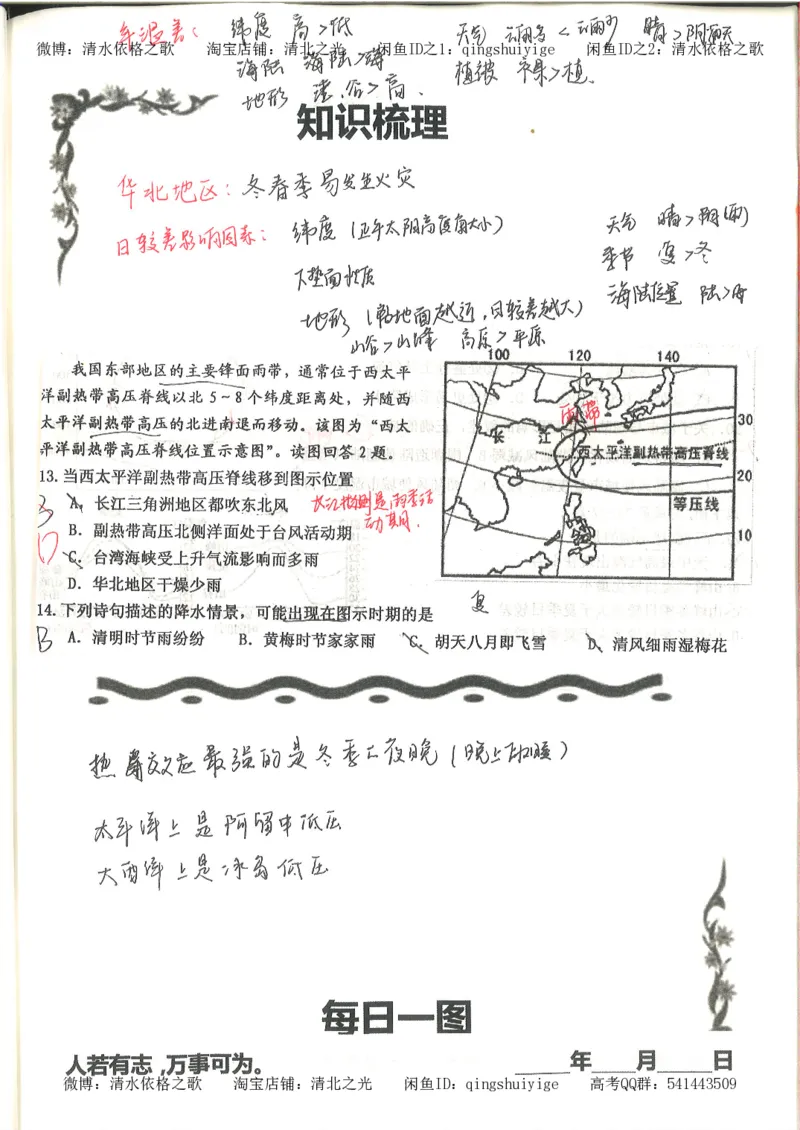 年温差： 纬度 高>低 天气 云雨多<云雨少 晴>阴雨天
微博：清水依格之歌 淘宝店铺：清北之光 闲鱼ID之1：qingshuiyige 闲鱼ID之2：清水依格之歌
海陆 海陆>海
植被 裸>植.
地形 谷>高.
知识梳理
华北地区：冬春季易发生火灾
日较差影响因素： 纬度（正午太阳高度角大小） 天气 晴>阴(雨)
季节 夏>冬
下垫面性质 海陆位置 陆>海
地形（离地面越近，日较差越大）
山谷>山峰 高原>平原
我国东部地区的主要锋面雨带，通常位于西太平
洋副热带高压脊线以北5~8个纬度距离处，并随西
太平洋副热带高压的北进南退而移动。该图为“西太
平洋副热带高压脊线位置示意图”。读图回答2题。
100 120 140
雨带
30
长 江
西太平洋副热带高压脊线
20
等压线
10
13.当西太平洋副热带高压脊线移到图示位置
A．长江三角洲地区都吹东北风
B．副热带高压北侧洋面处于台风活动期
C．台湾海峡受上升气流影响而多雨
D．华北地区干燥少雨
夏
14.下列诗句描述的降水情景，可能出现在图示时期的是
B A．清明时节雨纷纷 B．黄梅时节家家雨 C．胡天八月即飞雪 D．清风细雨湿梅花
热岛效应最强的是冬季夜晚（晚上）
太平洋上是阿留申低压
大西洋上是冰岛低压
每日一图
人若有志，万事可为。 ____年____月____日
微博：清水依格之歌 淘宝店铺：清北之光 闲鱼ID：qingshuiyige 高考QQ群：541443509